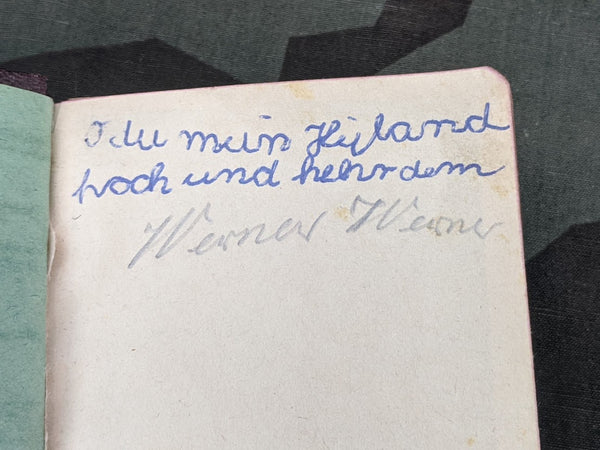 O du mein Heyland
hoch und hehr dem
Werner Werner